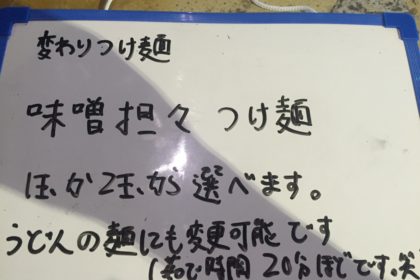 変わりつけ麺
味噌担々つけ麺
1玉か2玉から選べます。
うどんの麺にも変更可能です
(茹で時間20分ほどです。